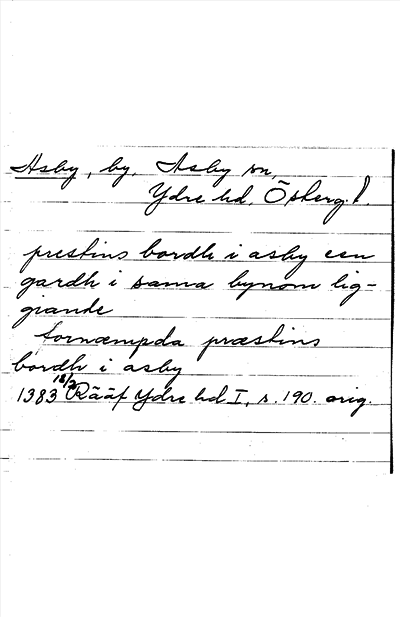 Asby, by, Asby sn,
Ydre hd, Östergl.
prestins bordh i asby een
gardh i sama bynom lig-
giande
fornæmpda præstins
bordh i asby
1383 Rääf Ydre hd I, s. 190. orig.